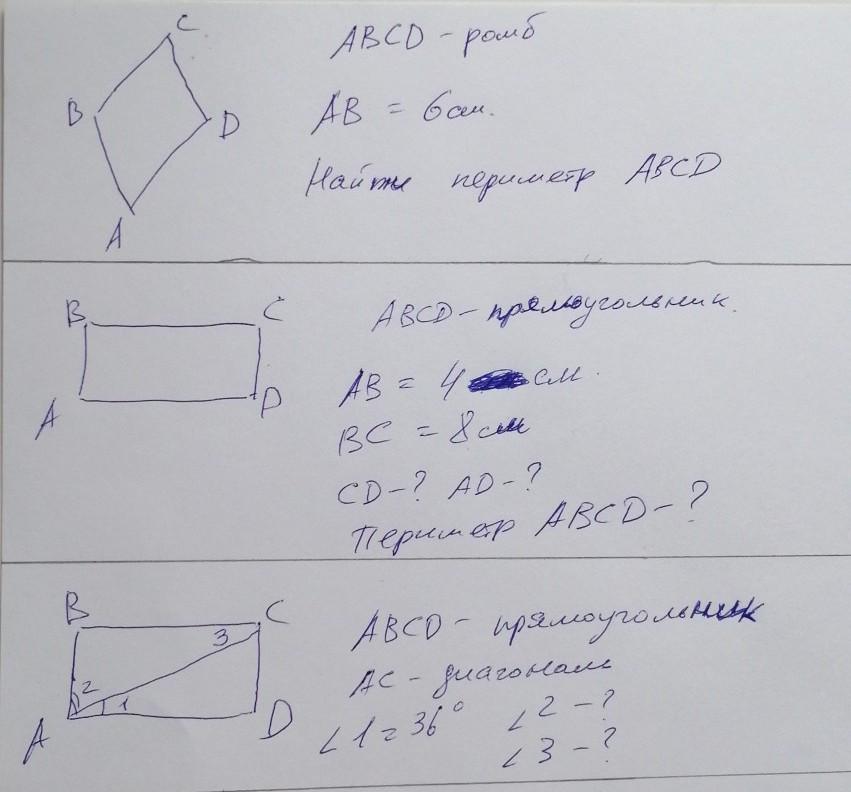 C
ABCD - ромб
B
D
AB = 6 см.
Найти периметр ABCD
A
B
C
ABCD - прямоугольник.
A
D
AB = 4 см.
BC = 8 см
CD - ? AD - ?
Периметр ABCD - ?
B
C
3
ABCD - прямоугольник
AC - диагональ
2
1
A
D
∠1 = 36° ∠2 - ?
∠3 - ?